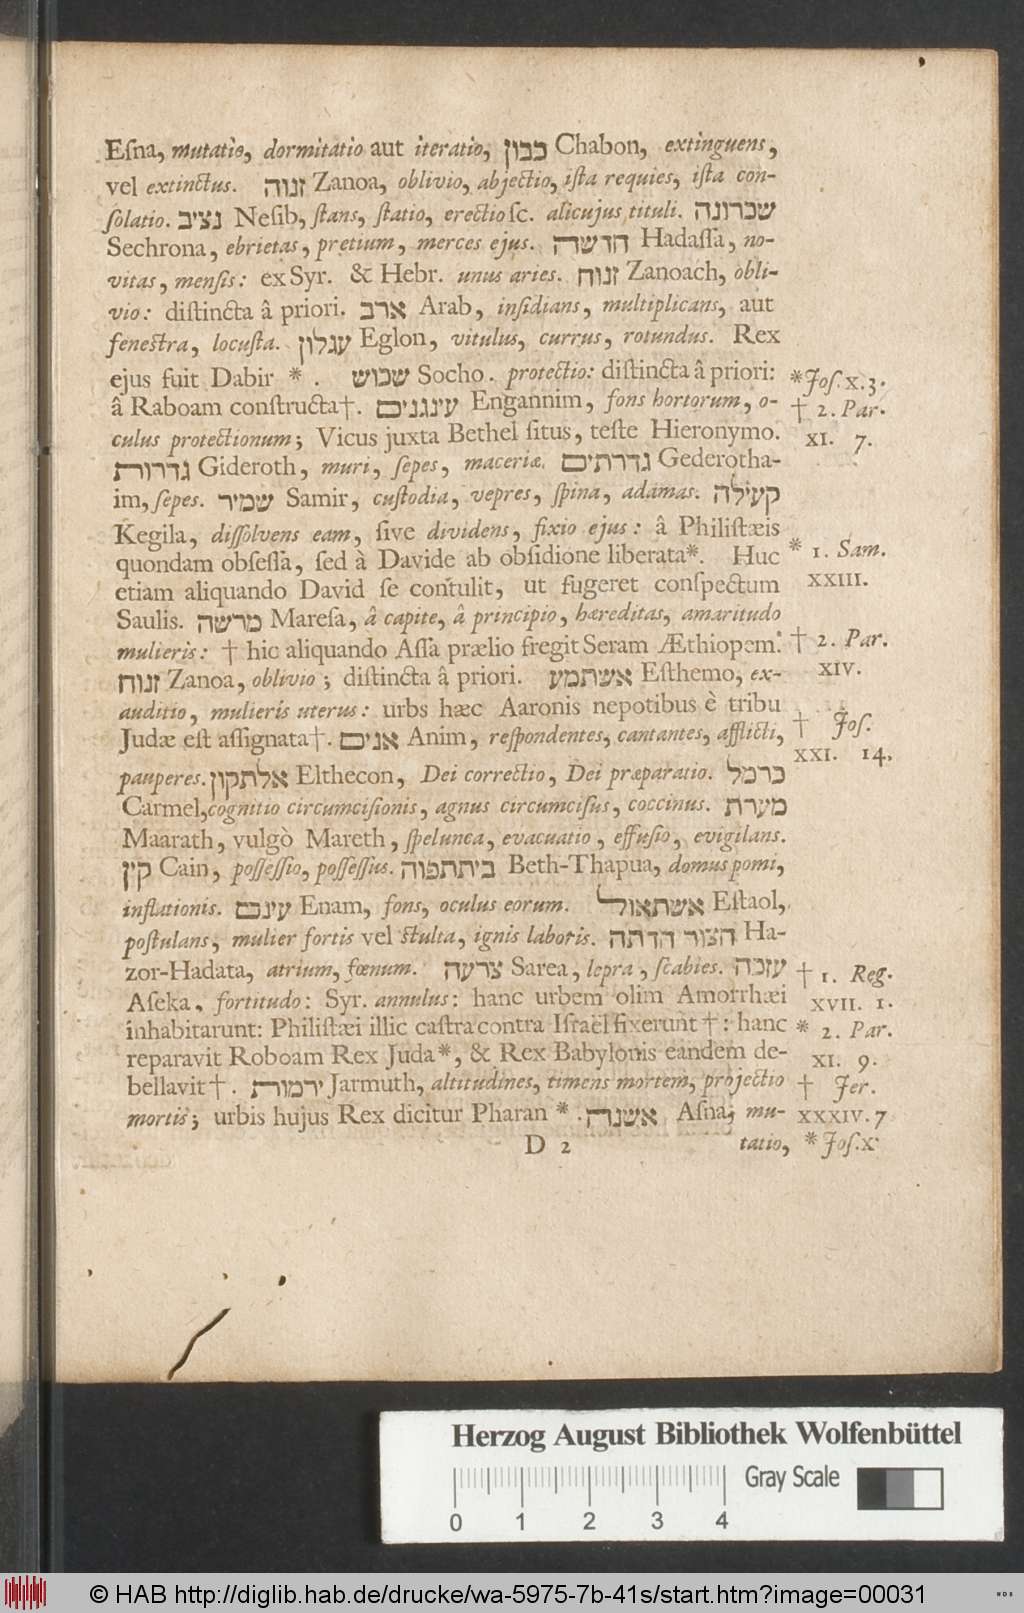 Eſna, mutatio, dormitatio aut iteratio, כבון Chabon, extinguens,
vel extinctus. זנוה Zanoa, oblivio, abjectio, iſta requies, iſta con-
ſolatio. נציב Neſib, ſtans, ſtatio, erectio ſc. alicujus tituli. שכרונה
Sechrona, ebrietas, pretium, merces ejus. חדשה Hadaſſa, no-
vitas, menſis: ex Syr. & Hebr. unus aries. זנוח Zanoach, obli-
vio: diſtincta â priori. ארב Arab, inſidians, multiplicans, aut
feneſtra, locuſta. עגלון Eglon, vitulus, currus, rotundus. Rex
ejus fuit Dabir * . שכוש Socho. protectio: diſtincta â priori:
*Joſ. X. 3.
â Raboam conſtructa†. עינגנים Engannim, fons hortorum, o-
† 2. Par.
culus protectionum; Vicus juxta Bethel ſitus, teſte Hieronymo.
XI. 7.
גדרות Gideroth, muri, ſepes, maceriæ. גדרתים Gederotha-
im, ſepes. שמיר Samir, cuſtodia, vepres, ſpina, adamas. קעילה
Kegila, diſſolvens eam, ſive dividens, fixio ejus: â Philiſtæis
quondam obſeſſa, ſed à Davide ab obſidione liberata*. Huc
* 1. Sam.
etiam aliquando David ſe contulit, ut fugeret conſpectum
XXIII.
Saulis. מרשה Mareſa, â capite, â principio, hæreditas, amaritudo
mulieris: † hic aliquando Aſſa prælio fregit Seram Æthiopem.
† 2. Par.
זנוח Zanoa, oblivio; diſtincta â priori. אשתמע Eſthemo, ex-
XIV.
auditio, mulieris uterus: urbs hæc Aaronis nepotibus è tribu
Judæ eſt aſſignata†. אנים Anim, reſpondentes, cantantes, afflicti,
† Joſ.
XXI. 14.
pauperes. אלתקון Elthecon, Dei correctio, Dei præparatio. כרמל
Carmel, cognitio circumciſionis, agnus circumciſus, coccinus. מערת
Maarath, vulgò Mareth, ſpelunca, evacuatio, effuſio, evigilans.
קין Cain, poſſeſſio, poſſeſſus. ביתתפוה Beth-Thapua, domus pomi,
inflationis. עינם Enam, fons, oculus eorum. אשתאול Eſtaol,
poſtulans, mulier fortis vel ſtulta, ignis laboris. הצור הדתה Ha-
zor-Hadata, atrium, fœnum. צרעה Sarea, lepra, ſcabies. עזכה
† 1. Reg.
Aſeka, fortitudo: Syr. annulus: hanc urbem olim Amorrhæi
XVII. 1.
inhabitarunt: Philiſtæi illic caſtra contra Iſraël fixerunt†: hanc
* 2. Par.
reparavit Roboam Rex Juda*, & Rex Babylonis eandem de-
XI. 9.
bellavit†. ירמות Jarmuth, altitudines, timens mortem, projectio
† Jer.
mortis; urbis hujus Rex dicitur Pharan *. אשנה Aſna, mu-
XXXIV. 7
D 2
tatio,
* Joſ. X.
Herzog August Bibliothek Wolfenbüttel
Gray Scale
0 1 2 3 4
© HAB http://diglib.hab.de/drucke/wa-5975-7b-41s/start.htm?image=00031